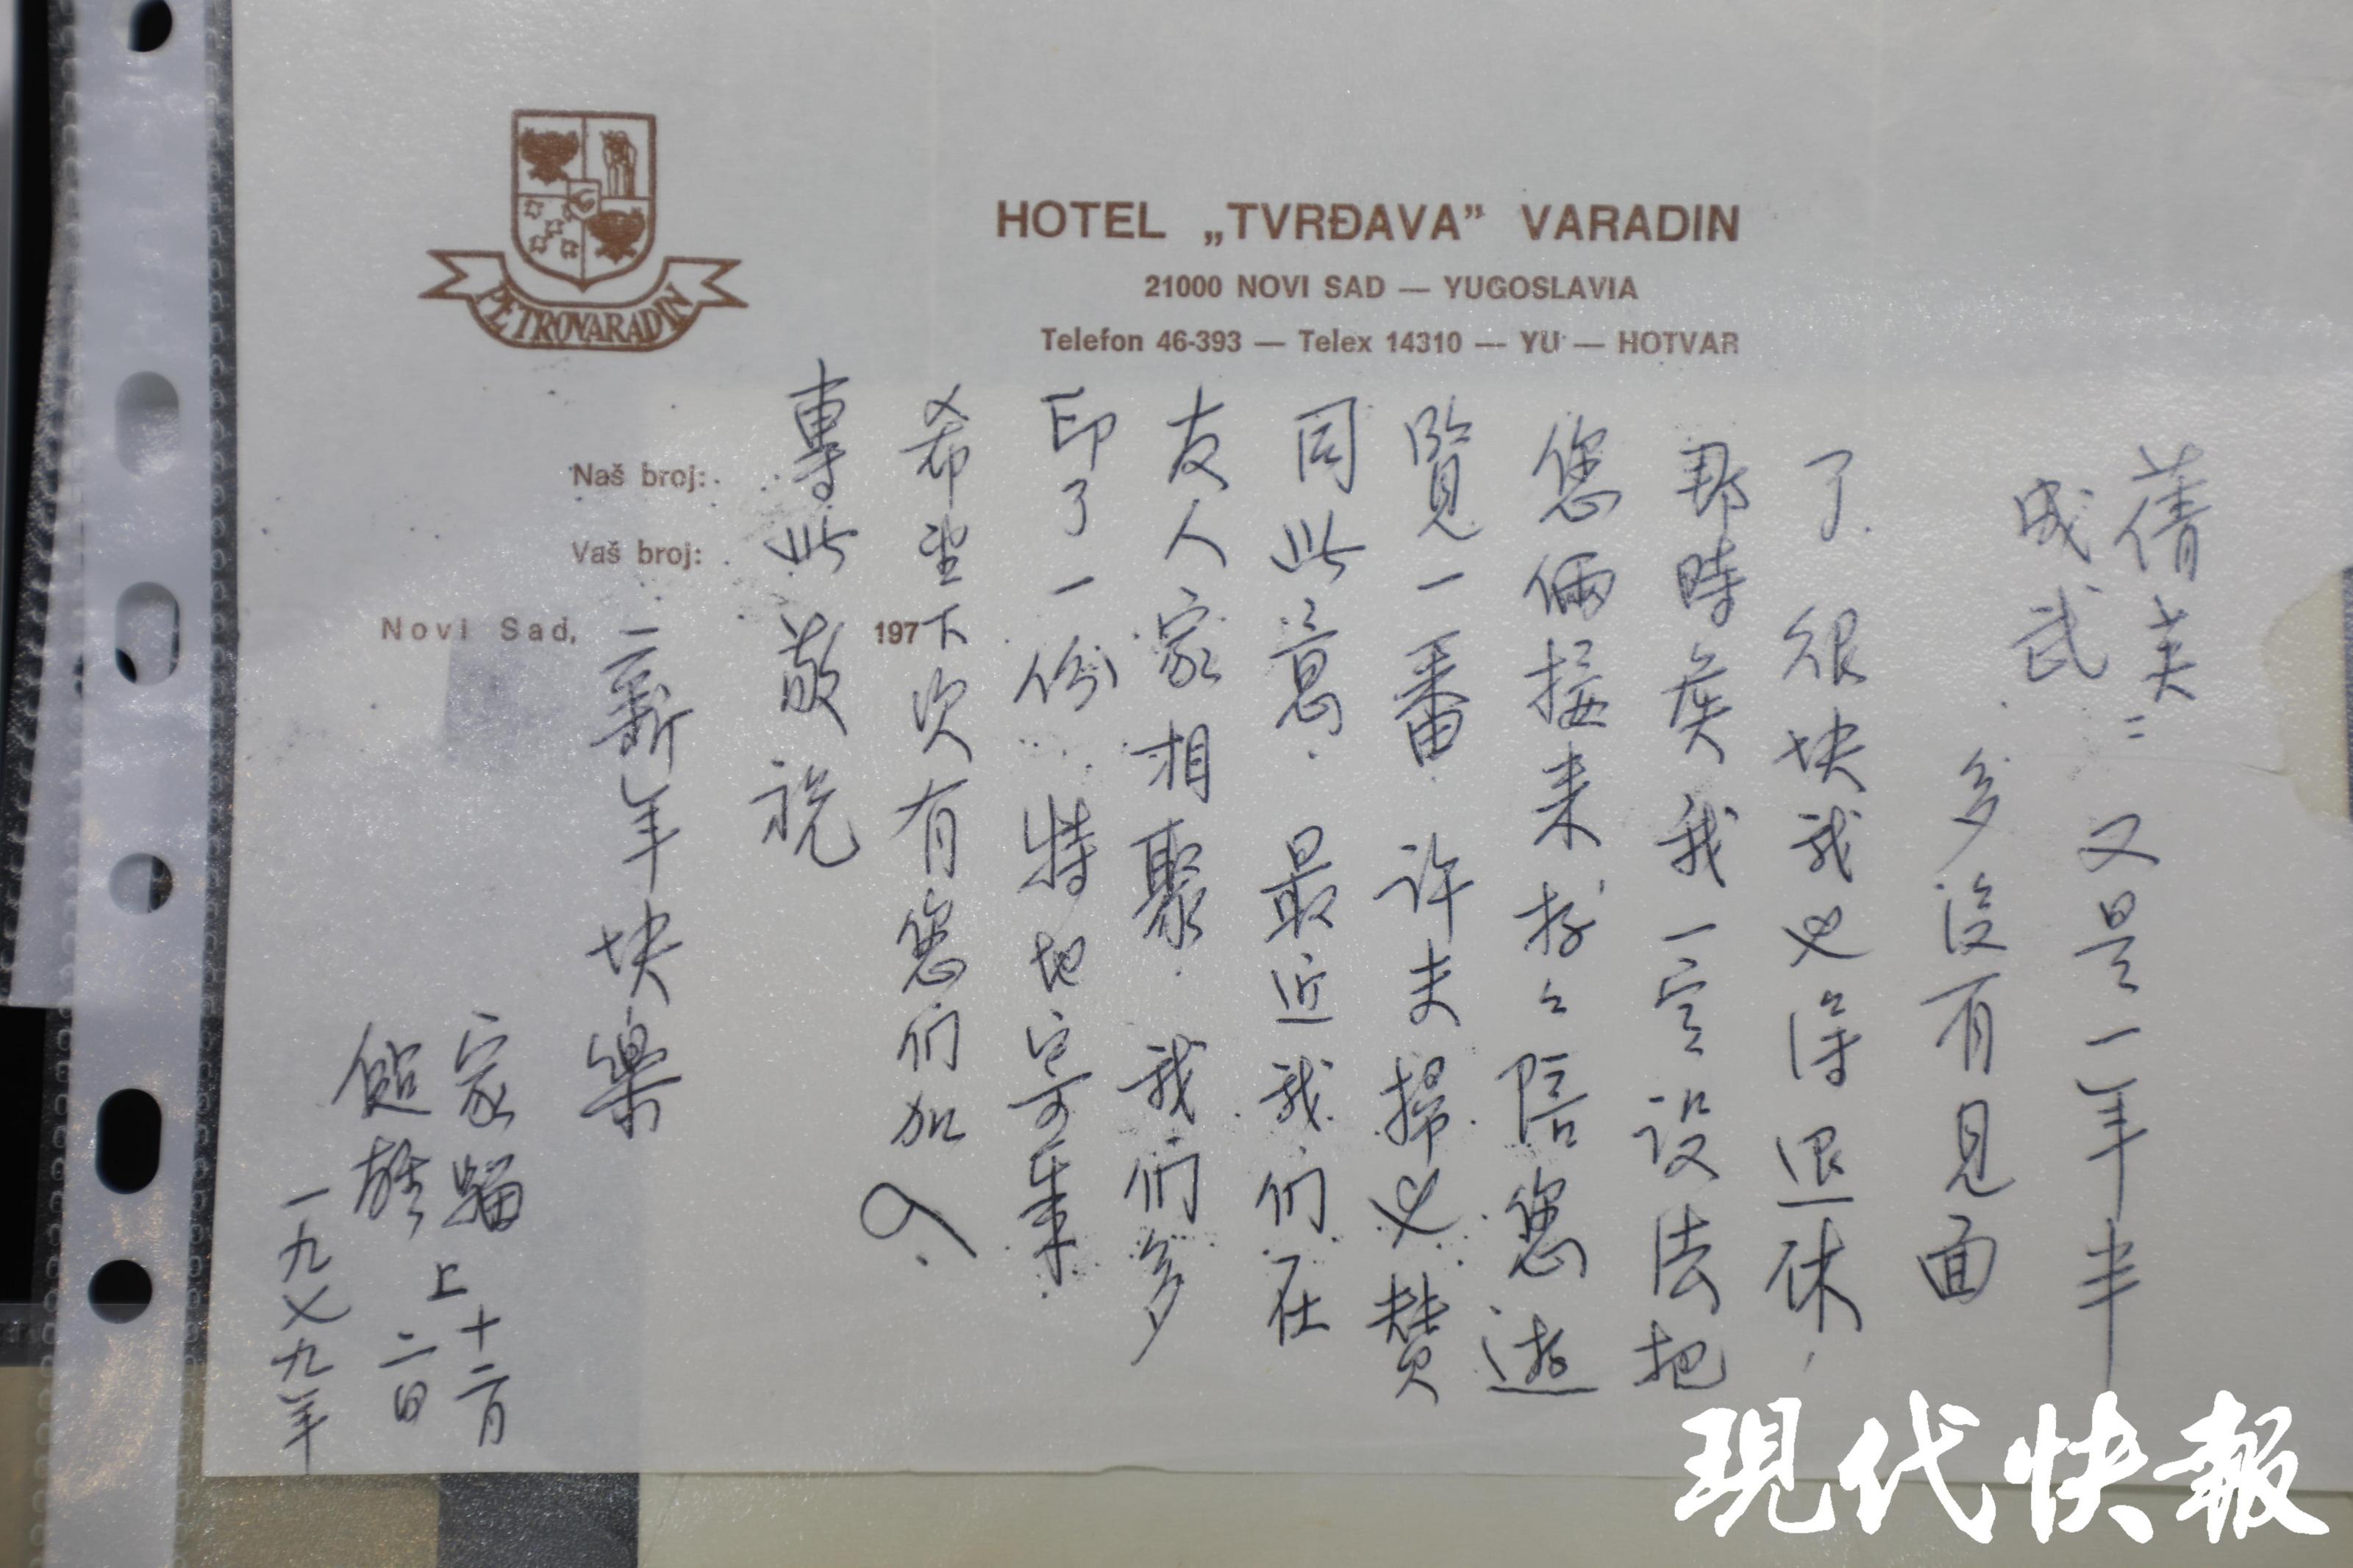 PETROVARADIN
HOTEL „TVRĐAVA” VARADIN
21000 NOVI SAD — YUGOSLAVIA
Telefon 46-393 — Telex 14310 — YU — HOTVAR
Naš broj:
Vaš broj:
Novi Sad, 197
蒨芙
成武：又是一年半
多沒有見面
了 很快我必得退休，
那時矦我一定設法把
您倆接来好好陪您遊
覽一番 許夫掃必贊
同此意 最近我们在
友人家相聚 我们多
印了一份 特地寄来
希望下次有您们加入
專此敬祝
新年快樂
家騮
上十二月
二日
一九七九年
現代快報